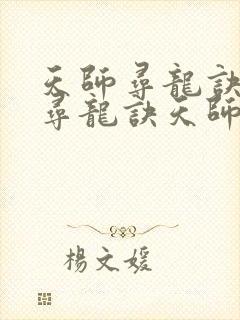 天師尋龍訣
尋龍訣天師
楊文媛